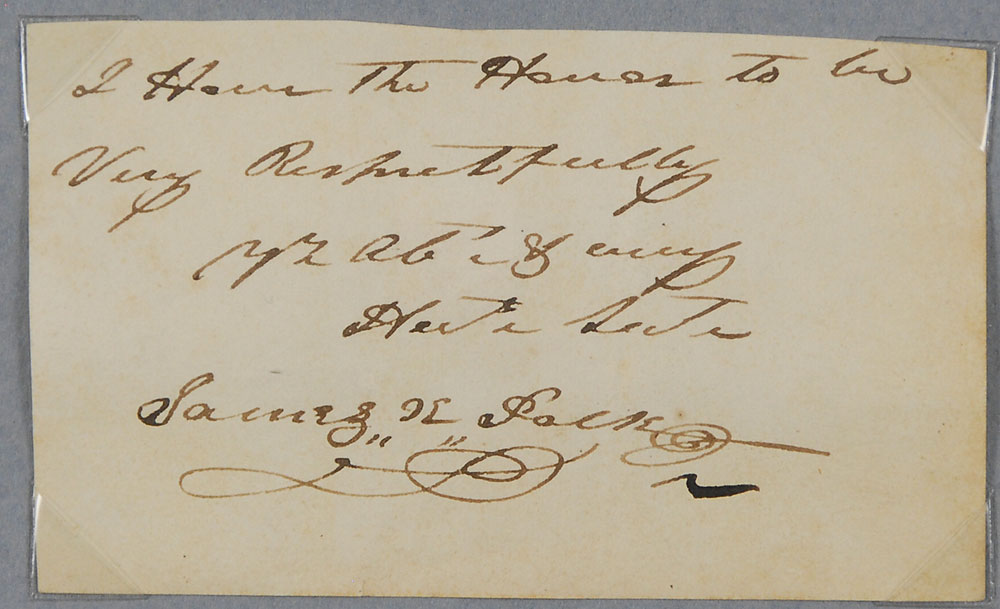 I Have The Honor to be
Very Respectfully
Yr Obt & very
James K Polk